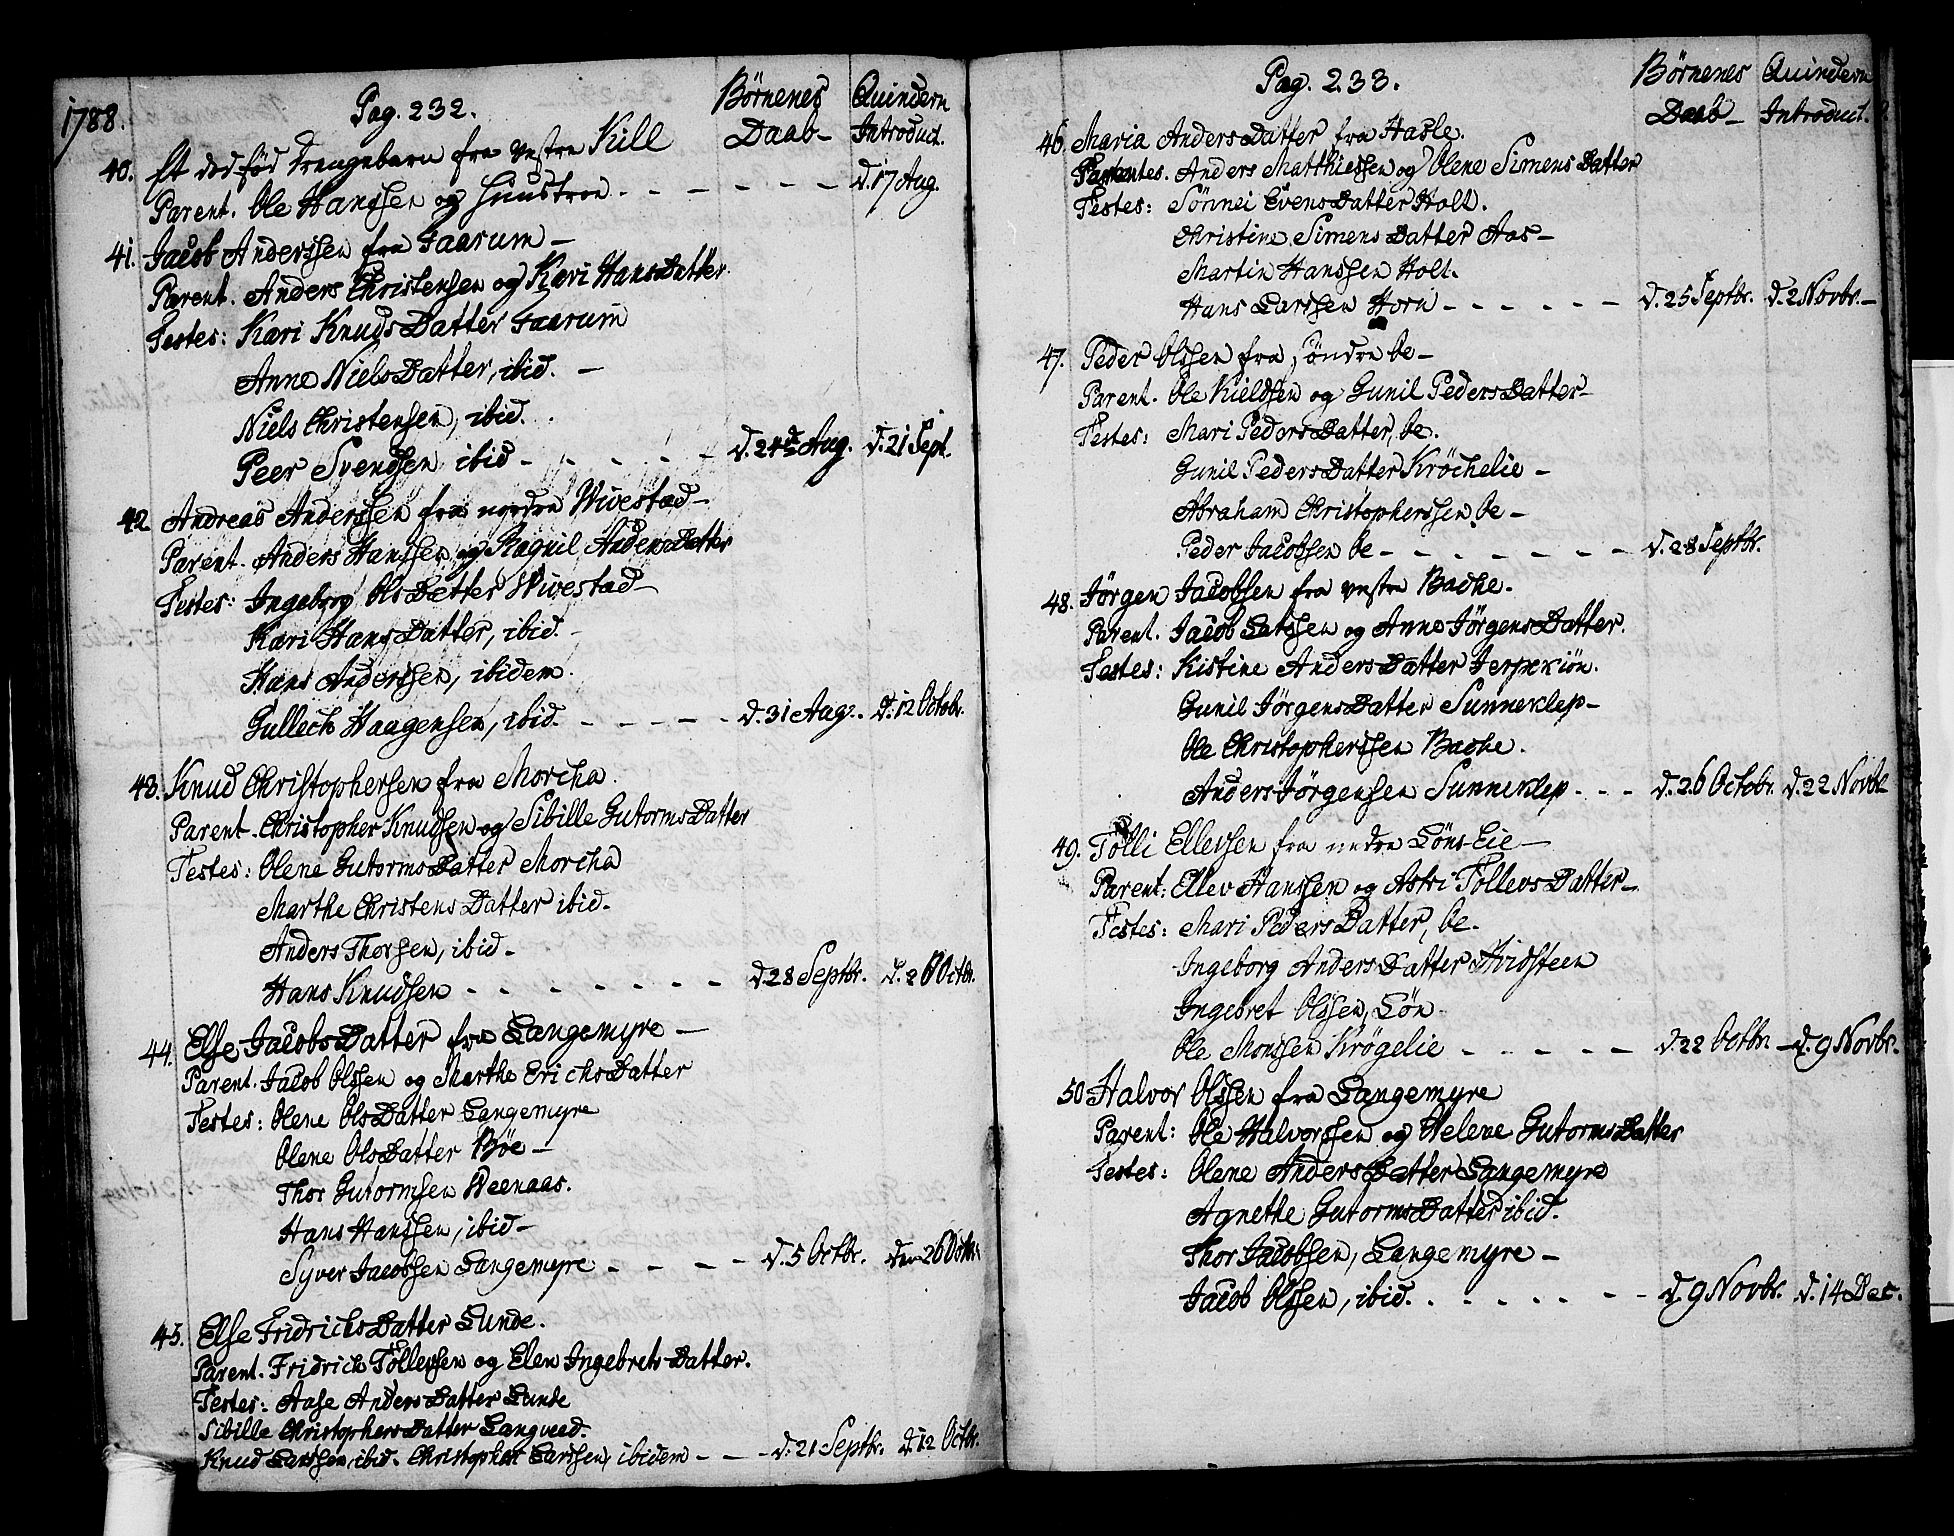 1788.
Pag. 232.
Börnenes Daab
Quindern Introduct.
40. Et död föd drengebarn fra vestre Kill
Parent. Ole Hanssen og Huustroe - - - - - - d. 17 Aug.
41. Jacob Anderssen fra Faarum -
Parent. Anders Christensen og Kari HansDatter
Testes: Kari KnudsDatter Faarum
Anne NielsDatter, ibid. -
Niels Christensen, ibid.
Peer Svendsen ibid - - - - - - d. 24de Aug. d. 21 Sept.
42 Andreas Anderssen fra nordre Wivestad -
Parent. Anders Hanssen og Ragnil AndersDatter
Testes: Ingeborg OlsDatter Wivestad -
Kari HansDatter, ibid. -
Hans Anderssen, ibidem.
Gullech Haagensen, ibid. - - - - - d. 31 Aug. d. 12 Octobr.
43. Knud Christophersen fra Morcha
Parent. Christopher Knudsen og Sibille GutormsDatter
Testes: Olene GutormsDatter Morcha
Marthe ChristensDatter ibid.
Anders Thorsen, ibid.
Hans Knudsen - - - - - - - d. 28 Septbr. d. 26 Octbr.
44. Else JacobsDatter fra Langemyre -
Parent. Jacob Olssen og Marthe ErichsDatter
Testes: Olene OlsDatter Langemyre
Olene OlsDatter Böe -
Thor Gutormsen Weenaas.
Hans Hanssen, ibid -
Syver Jacobsen Langemyre - - - - d. 5 Octbr. den 26 Octbr.
45. Else FridrichsDatter Lunde.
Parent. Fridrich Tollevsen og Elen IngebretsDatter.
Testes: Aase AndersDatter Lunde
Sibille ChristophersDatter Langveed.
Knud Larssen, ibid. Christopher Larssen, ibidem - - - d. 21 Septbr. d. 12 Octbr.
Pag. 233.
Börnenes Daab -
Quindern Introduct.
46. Maria AndersDatter fra Hasle.
Parentes. Anders Matthiessen og Olene SimensDatter
Testes: Sönnei EvensDatter Holt.
Christine SimensDatter Aas -
Martin Hanssen Holt.
Hans Larssen Horn - - - - - - d. 25 Septbr. d. 2 Novbr. -
47. Peder Olssen fra söndre Oe -
Parent. Ole Kieldsen og Gunil PedersDatter -
Testes: Mari PedersDatter, Oe.
Gunil PedersDatter Kröchelie -
Abraham Christopherssen Oe -
Peder Jacobsen Oe - - - - - - - d. 28 Septbr.
48. Jörgen Jacobsen fra vestre Bache.
Parent. Jacob Larssen og Anne JörgensDatter.
Testes: Kistine AndersDatter Jerpekiön.
Gunil JörgensDatter Sunneklep -
Ole Christopherssen Bache.
Anders Jörgensen Sunneklep - - - d. 26 Octobr. d. 22 Novbr.
49. Tolli Ellevsen fra nedre Löns-Eie -
Parent: Ellev Hanssen og Astri TollevsDatter -
Testes: Mari PedersDatter, Oe.
Ingeborg AndersDatter Hvidsteen
Ingebret Olssen, Lön
Ole Monssen Krögelie - - - - - d. 22 Octbr. - d. 9 Novbr.
50 Halvor Olssen fra Langemyre
Parent: Ole Halvorssen og Helene GutormsDatter
Testes: Olene AndersDatter Langemyre
Agnethe GutormsDatter ibid.
Thor Jacobsen, Langemyre -
Jacob Olssen, ibid. - - - - - - d. 9 Novbr. d. 14 Dec.